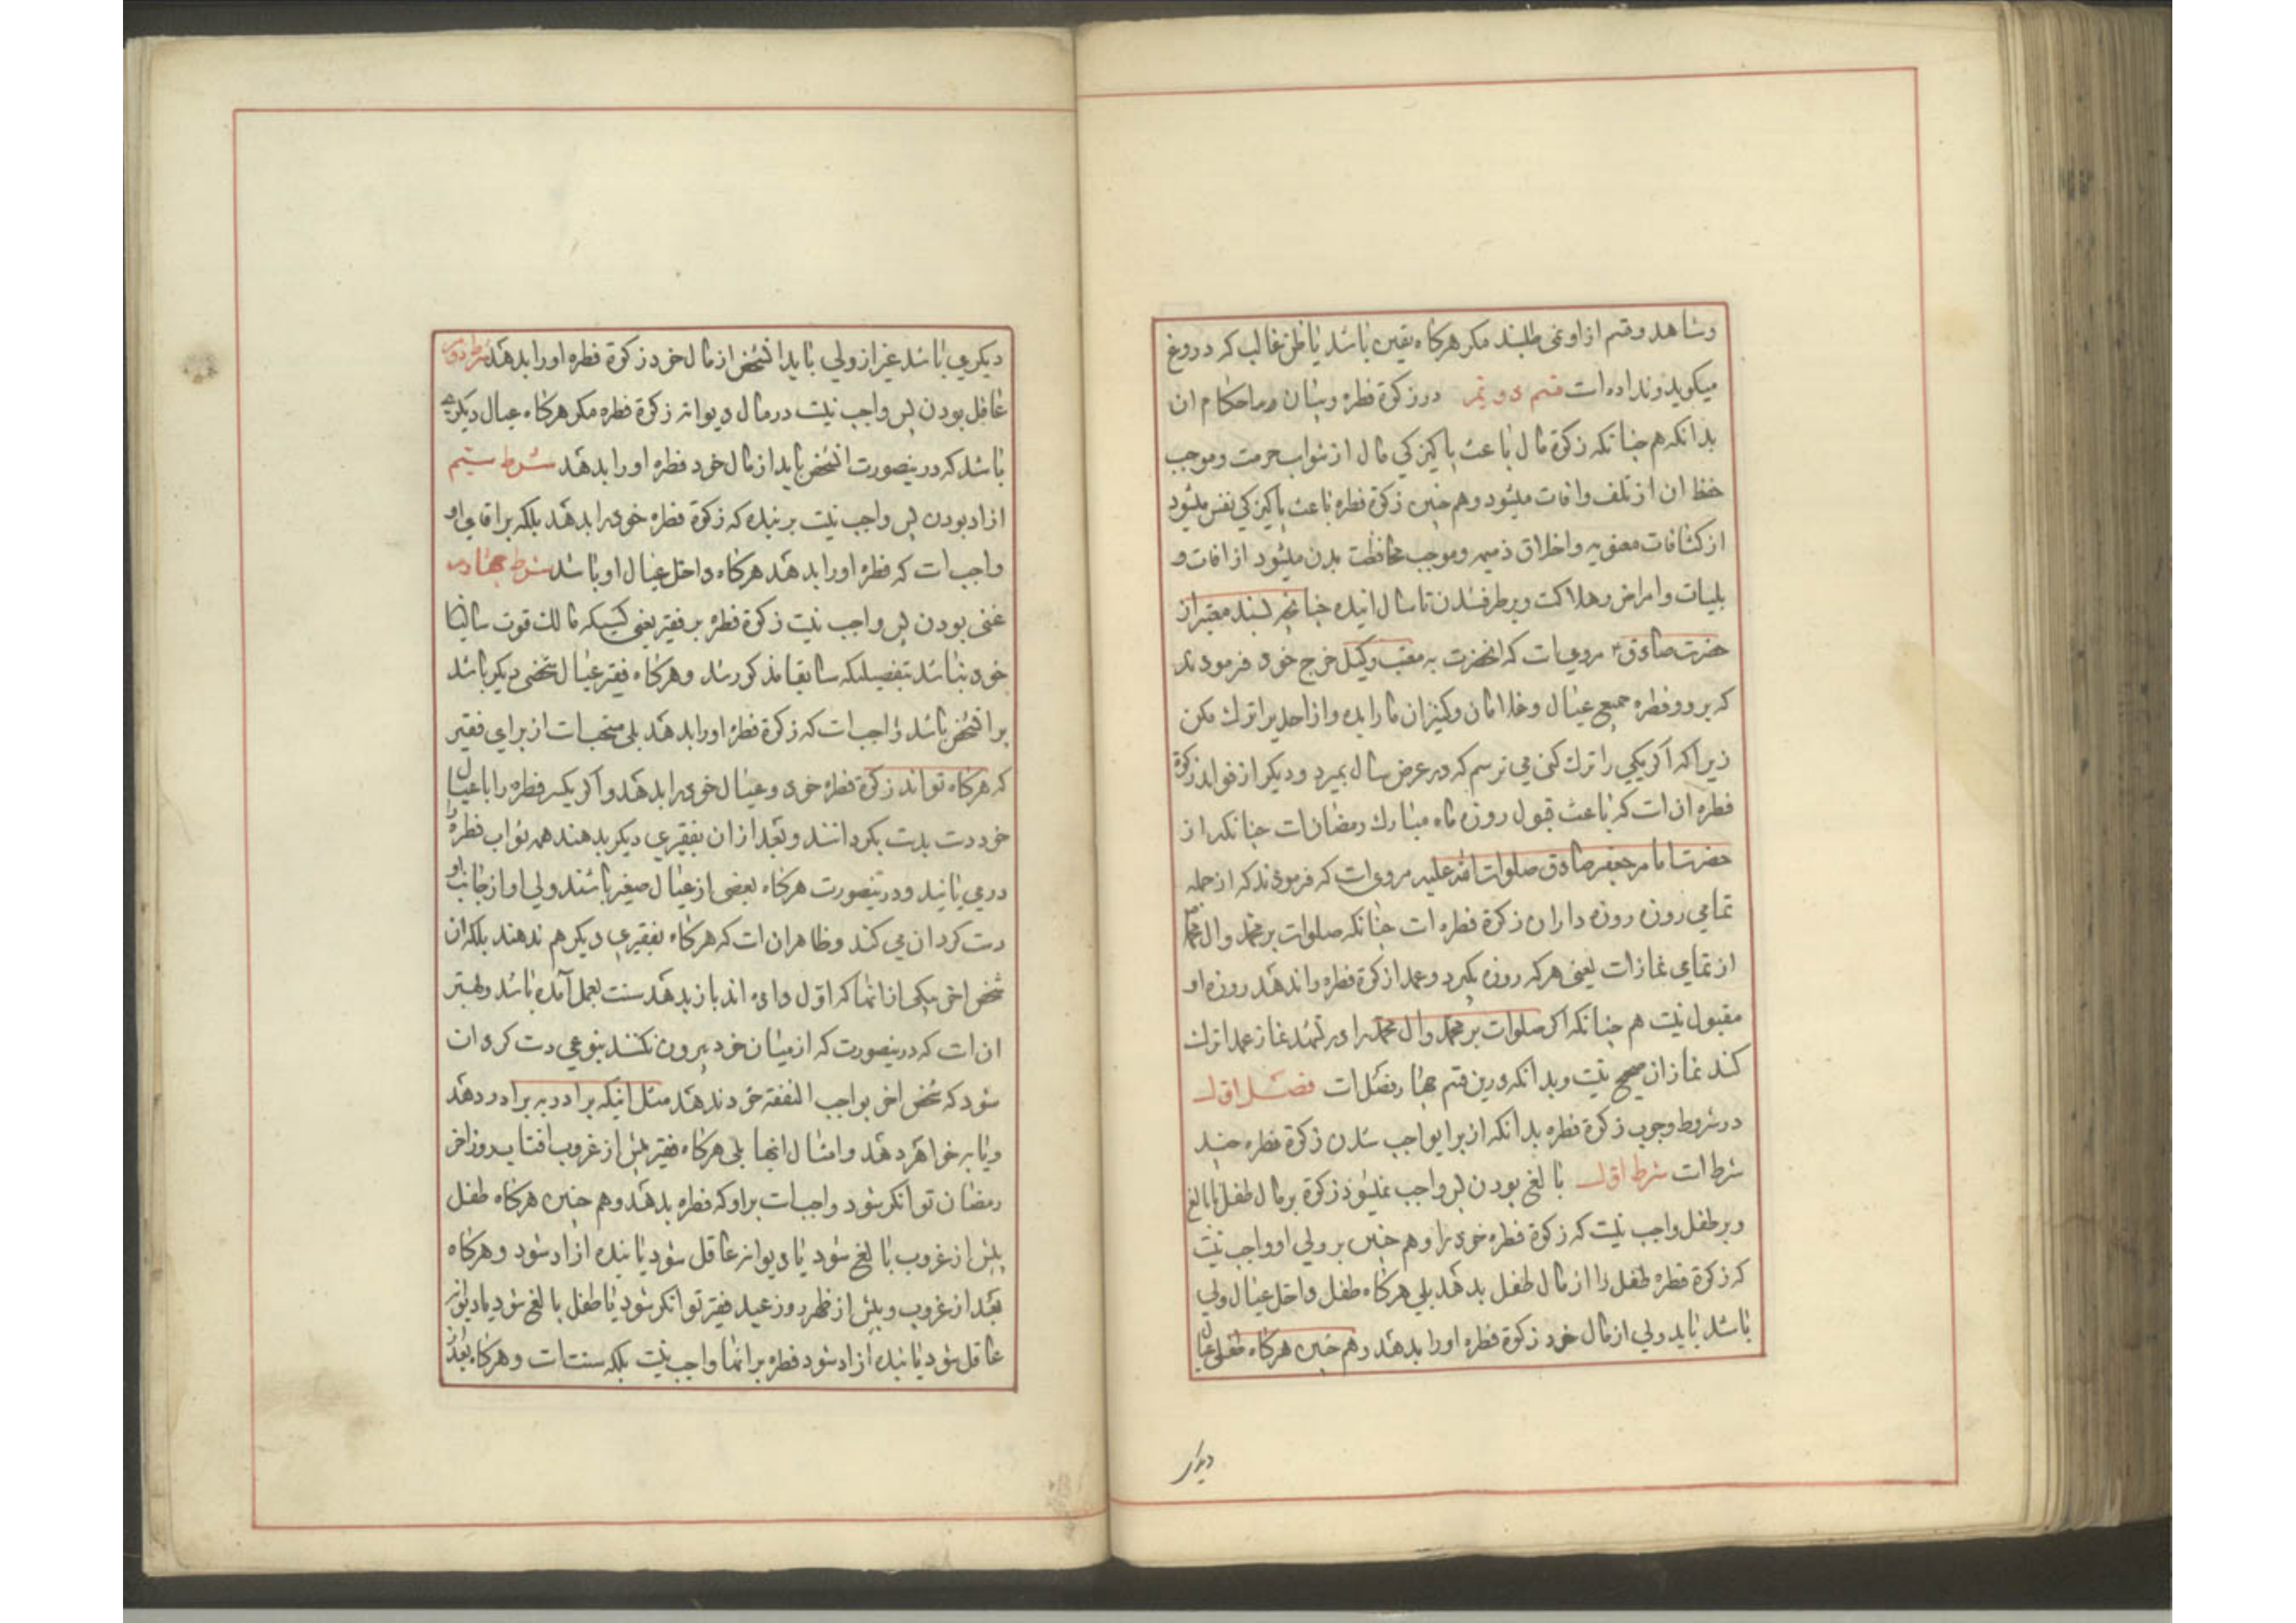 وشاهد وقسم از او نمی طلبند مکر هرکاه یقین باشد یا ظن غالب که دروغ
میکوید ونداده است قسم دویم در زکوة فطره وبیان احکام ان
بدانکه هم چنانکه زکوة مال باعث پاکیزکی مال از شواب حرمت وموجب
حفظ ان از تلف وافات میشود وهم چنین زکوة فطره باعث پاکیزکی نفس میشود
از کثافات معنویه واخلاق ذمیمه وموجب محافظت بدن میشود از افات و
بلیات وامراض وهلاکت وبرطرف شدن تا سال اینده چنانچه بسند معتبر از
حضرت صادق ع مرویست که انحضرت به معتب وکیل خرج خود فرمودند
که برو وفطره جمیع عیال وغلامان وکنیزان مارا بده واز احدیرا ترک مکن
زیرا که اکر یکی را ترک کنی می ترسم که در عرض سال بمیرد ودیکر از فواید زکوة
فطره ان است که باعث قبول روزه ماه مبارک رمضانست چنانکه از
حضرت امام جعفر صادق صلوات الله علیه مرویست که فرمودند که از جمله
تمامی روزه روزه داران زکوة فطره است چنانکه صلوات بر محمد وال محمد
از تمامی نماز است یعنی هرکه روزه بکیرد وعمدا زکوة فطره را ندهد روزه او
مقبول نیست هم چنانکه اکر صلوات بر محمد وال محمد را در تشهد نماز عمدا ترک
کند نماز ان صحیح نیست وبدانکه درین قسم چهار فصل است فصل اول
در شروط وجوب زکوة فطره بدانکه از برای واجب شدن زکوة فطره چند
شرط است شرط اول بالغ بودن پس واجب نمیشود زکوة بر مال طفل نابالغ
وبر طفل واجب نیست که زکوة فطره خود را وهم چنین بر ولی او واجب نیست
که زکوة فطره طفل را از مال طفل بدهد بلی هرکاه طفل داخل عیال ولی
باشد باید ولی از مال خود زکوة فطره اورا بدهد وهم چنین هرکاه طفلی عیال
دیکری
دیکری باشد غیر از ولی باید انشخص از مال خود زکوة فطره اورا بدهد شرط دویم
عاقل بودن پس واجب نیست در مال دیوانه زکوة فطره مکر هرکاه عیال دیکری
باشد که درینصورت انشخص باید از مال خود فطره اورا بدهد شرط سیم
ازاد بودن پس واجب نیست بر بنده که زکوة فطره خود را بدهد بلکه بر اقای او
واجب است که فطره اورا بدهد هرکاه داخل عیال او باشد شرط چهارم
غنی بودن پس واجب نیست زکوة فطره بر فقیر یعنی کسیکه مالک قوت سالیانه
خود نباشد بتفصیلیکه سابقا مذکور شد وهرکاه فقیر عیال شخصی دیکر باشد
بر انشخص باشد واجب است که زکوة فطره اورا بدهد بلی مستحب است از برای فقیر
که هرکاه تواند زکوة فطره خود وعیال خود را بدهد واکر یکسر فطره را با عیال
خود دست بدست بکردانند وبعد از ان بفقیری دیکر بدهند همه ثواب فطره را
در می یابند ودر ینصورت هرکاه بعضی از عیال صغیر باشند ولی او از جانب او
دست کردان می کند وظاهر ان است که هرکاه بفقیری دیکر هم ندهند بلکه ان
شخص اخر بیکی از انها که اول داده اند باز بدهد سنت بعمل آمده باشد وبهتر
ان است که درینصورت که از میان خود بیرون نکنند بنوعی دست کردان
شود که شخص اخر بواجب النفقه خود ندهد مثل اینکه برادر به برادر دهد
ویا به خواهر دهد وامثال اینها بلی هرکاه فقیر پیش از غروب افتاب روز اخر
رمضان توانکر شود واجب است بر او که فطره بدهد وهم چنین هرکاه طفل
پیش از غروب بالغ شود یا دیوانه عاقل شود یا بنده ازاد شود وهرکاه
بعد از غروب وپیش از ظهر روز عید فقیر توانکر شود یا طفل بالغ شود یا دیوانه
عاقل شود یا بنده ازاد شود فطره بر انها واجب نیست بلکه سنت است وهرکاه بعد از